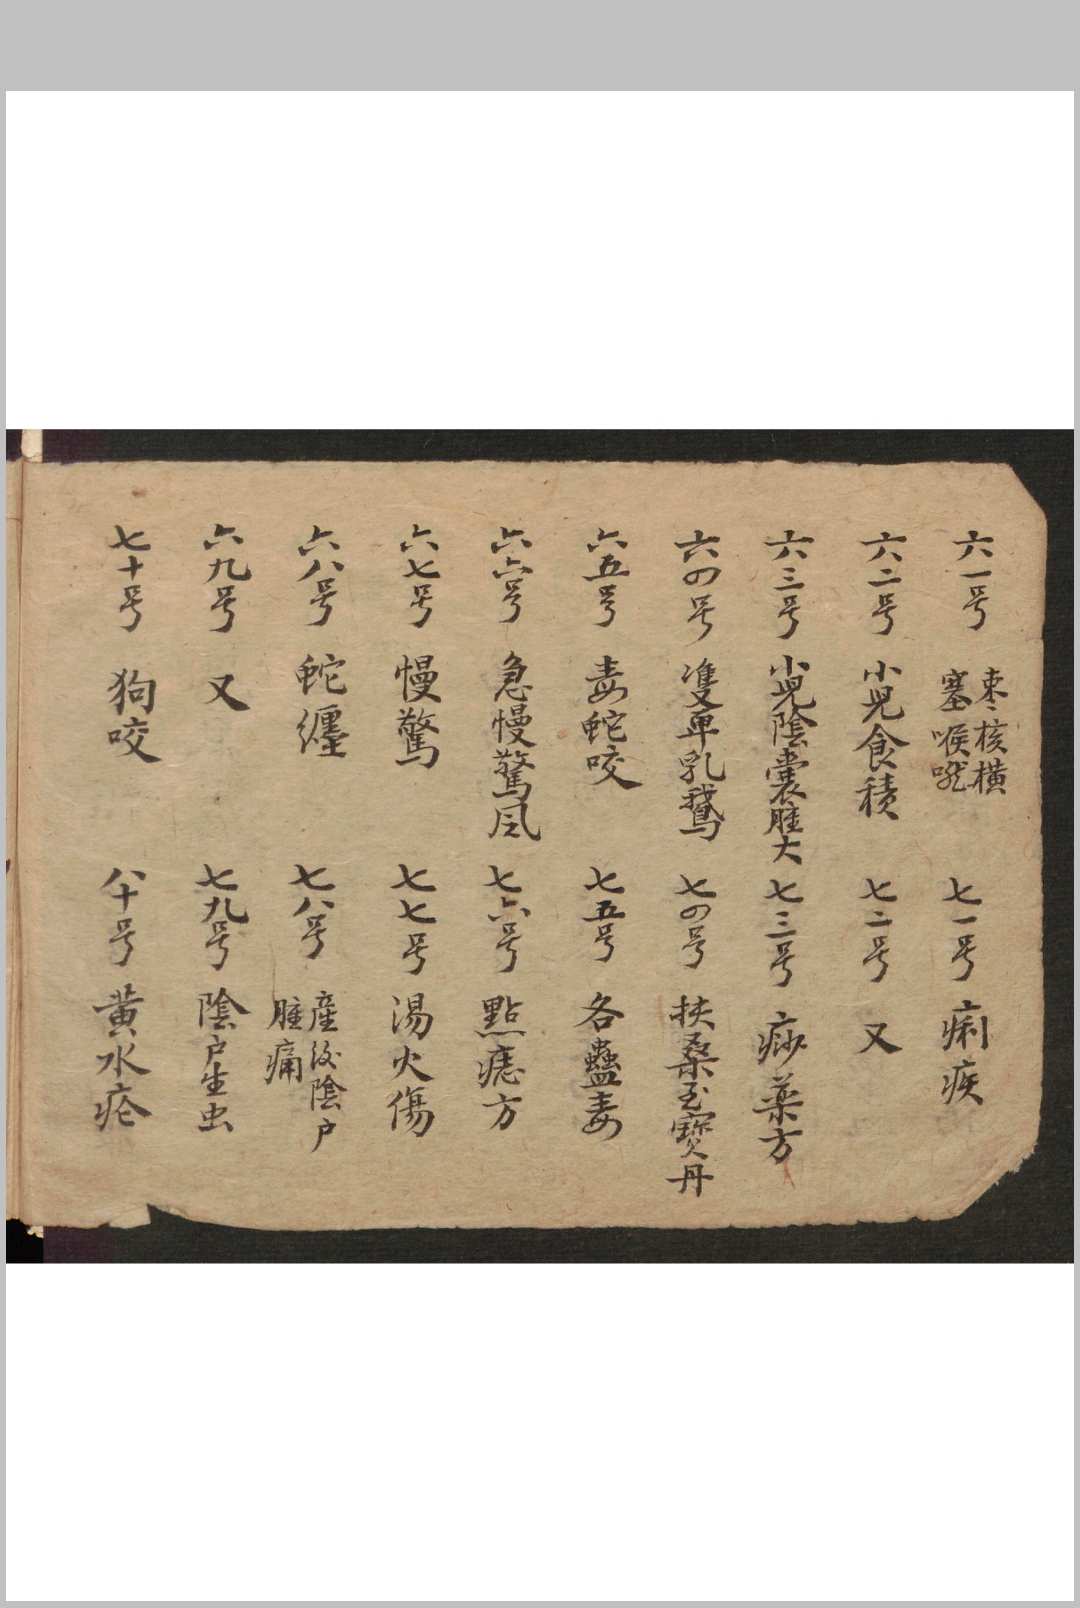 六一号 枣核橫塞喉嚨
六二号 小児食積
六三号 小児陰囊腫大
六四号 隻單乳鵝
六五号 毒蛇咬
六六号 急慢驚風
六七号 慢驚
六八号 蛇纏
六九号 又
七十号 狗咬
七一号 痢疾
七二号 又
七三号 痧藥方
七四号 扶桑至寶丹
七五号 各蠱毒
七六号 點痣方
七七号 湯火傷
七八号 產後陰户腫痛
七九号 陰户生虫
八十号 黃水疮